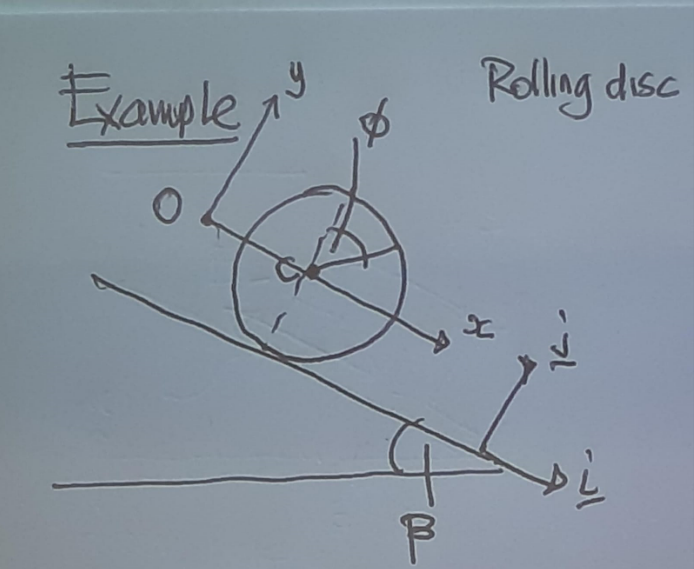 Example
Rolling disc
y
ϕ
O
C
x
j
i
β